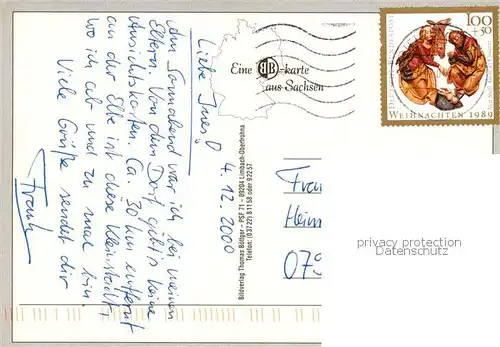 Liebe Ines! 4.12.2000
Am Sonnabend war ich bei meinen
Eltern. Von dem Dorf gibt's keine
Ansichtskarten. Ca 30 km entfernt
an der Elbe ist diese Kleinstadt,
wo ich ab und zu mal bin.
Viele Grüße sendet dir
Frank
Eine BB-karte
aus Sachsen
Bildverlag Thomas Böttger - PSF 71 - 09204 Limbach-Oberfrohna
Telefon: (03722) 81158 oder 92257
100
+50
WEIHNACHTEN 1989
Heim
privacy protection
Datenschutz